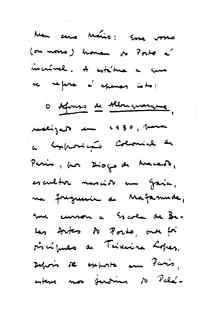 Meu caro Mário: Esse vosso
(ou nosso) Homem do Porto é
incrível. A estátua a que
se refere é apenas isto:
O Afonso de Albuquerque,
realizado em 1930, para
a Exposição Colonial de
Paris, por Diogo de Macedo,
escultor nascido em Gaia,
na freguesia de Mafamude,
que cursou a Escola de Be-
las Artes do Porto, onde foi
discípulo de Teixeira Lopes.
Depois de exposto em Paris,
esteve nos Jardins do Palá-